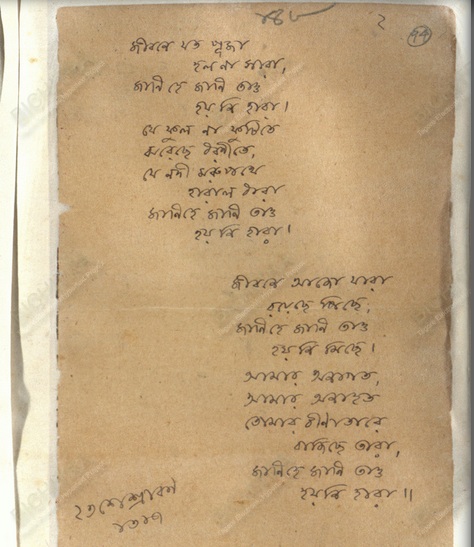 ২
44
জীবনে যত পূজা
হল না সারা,
জানি হে জানি তাও
হয় নি হারা।
যে ফুল না ফুটিতে
ঝরেছে ধরণীতে,
যে নদী মরুপথে
হারাল ধারা
জানিহে জানি তাও
হয় নি হারা।
জীবনে আজো যাহা
রয়েছে পিছে,
জানিহে জানি তাও
হয় নি মিছে।
আমার অনাগত,
আমার অনাহত
তোমার বীণাতারে
বাজিছে তারা,
জানিহে জানি তাও
হয়নি হারা॥
২৩শে শ্রাবণ
১৩১৭